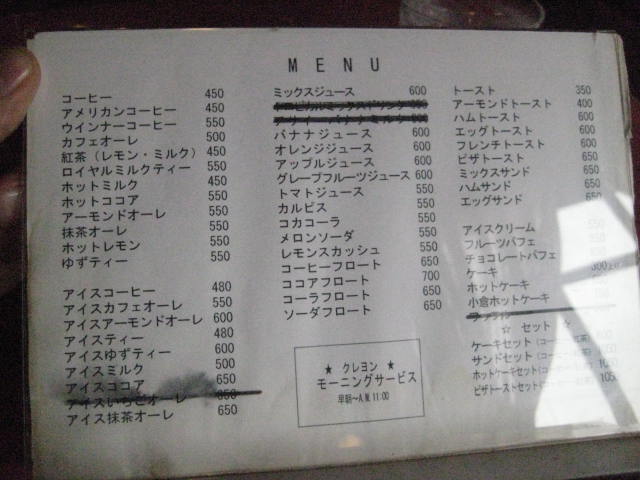 MENU
コーヒー 450
アメリカンコーヒー 450
ウインナーコーヒー 550
カフェオーレ 500
紅茶（レモン・ミルク） 450
ロイヤルミルクティー 550
ホットミルク 450
ホットココア 550
アーモンドオーレ 550
抹茶オーレ 550
ホットレモン 550
ゆずティー 550
アイスコーヒー 480
アイスカフェオーレ 550
アイスアーモンドオーレ 600
アイスティー 480
アイスゆずティー 600
アイスミルク 500
アイスココア 650
アイスいちごオーレ 650
アイス抹茶オーレ 650
ミックスジュース 600
バナナジュース 600
オレンジジュース 600
アップルジュース 600
グレープフルーツジュース 600
トマトジュース 550
カルピス 550
コカコーラ 550
メロンソーダ 550
レモンスカッシュ 550
コーヒーフロート 650
ココアフロート 700
コーラフロート 650
ソーダフロート 650
★ クレヨン ★
モーニングサービス
早朝～A.M.11:00
トースト 350
アーモンドトースト 400
ハムトースト
エッグトースト
フレンチトースト
ピザトースト
ミックスサンド
ハムサンド
エッグサンド
アイスクリーム
フルーツパフェ
チョコレートパフェ
ケーキ
ホットケーキ
小倉ホットケーキ
☆ セット ☆
ケーキセット(コーヒー・紅茶)
サンドセット(コーヒー・紅茶)
ホットケーキセット(コーヒー・紅茶) 1050
ピザトーストセット(コーヒー・紅茶) 1050